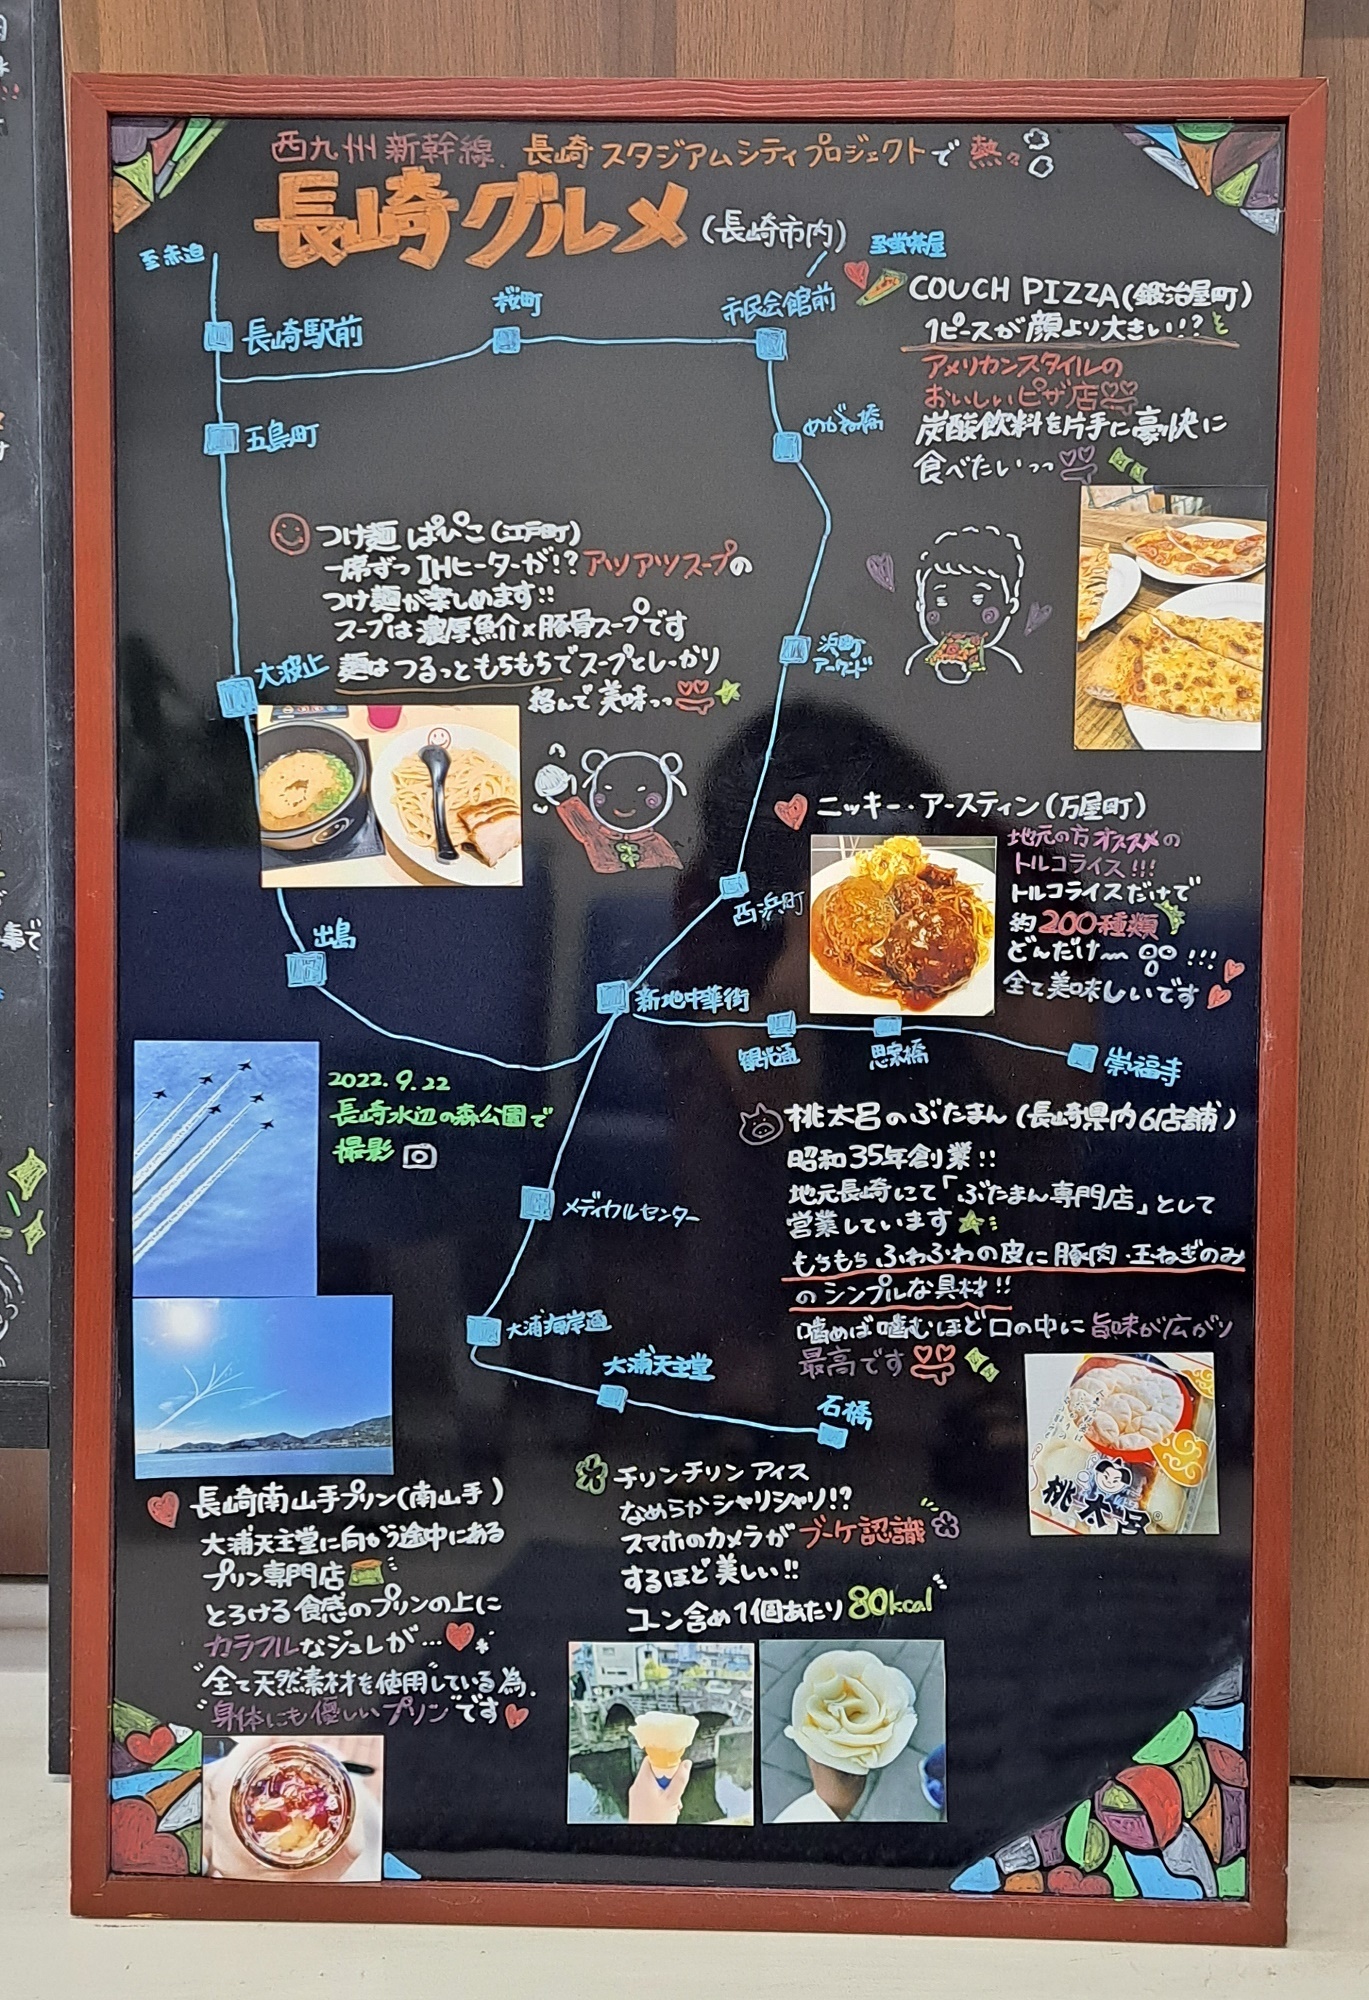 西九州新幹線、長崎スタジアムシティプロジェクトで熱々
長崎グルメ(長崎市内)
至赤迫
至蛍茶屋
長崎駅前
桜町
市民会館前
五島町
めがね橋
COUCH PIZZA(鍛治屋町)
1ピースが顔より大きい!?
アメリカンスタイルの
おいしいピザ店
炭酸飲料を片手に豪快に
食べたいっっ
つけ麺 ぱぴこ(江戸町)
一席ずつIHヒーターが!? アツアツスープの
つけ麺が楽しめます!!
スープは濃厚魚介×豚骨スープです
麺はつるっともちもちでスープとしっかり
絡んで美味っっ
大波止
浜町
アーケード
ニッキー・アースティン(万屋町)
地元の方オススメの
トルコライス!!!
トルコライスだけで
約200種類
どんだけ〜!!!
全て美味しいです
西浜町
出島
新地中華街
観光通
思案橋
崇福寺
2022.9.22
長崎水辺の森公園で
撮影
桃太呂のぶたまん(長崎県内6店舗)
昭和35年創業!!
地元長崎にて「ぶたまん専門店」として
営業しています
もちもちふわふわの皮に豚肉・玉ねぎのみ
のシンプルな具材!!
噛めば噛むほど口の中に旨味が広がり
最高です
メディカルセンター
大浦海岸通
大浦天主堂
石橋
桃太呂
長崎南山手プリン(南山手)
大浦天主堂に向かう途中にある
プリン専門店
とろける食感のプリンの上に
カラフルなジュレが…
"全て天然素材を使用"している為、
"身体にも優しいプリン"です
チリンチリンアイス
なめらかシャリシャリ!?
スマホのカメラがブーケ認識
するほど美しい!!
コーン含め1個あたり80kcal